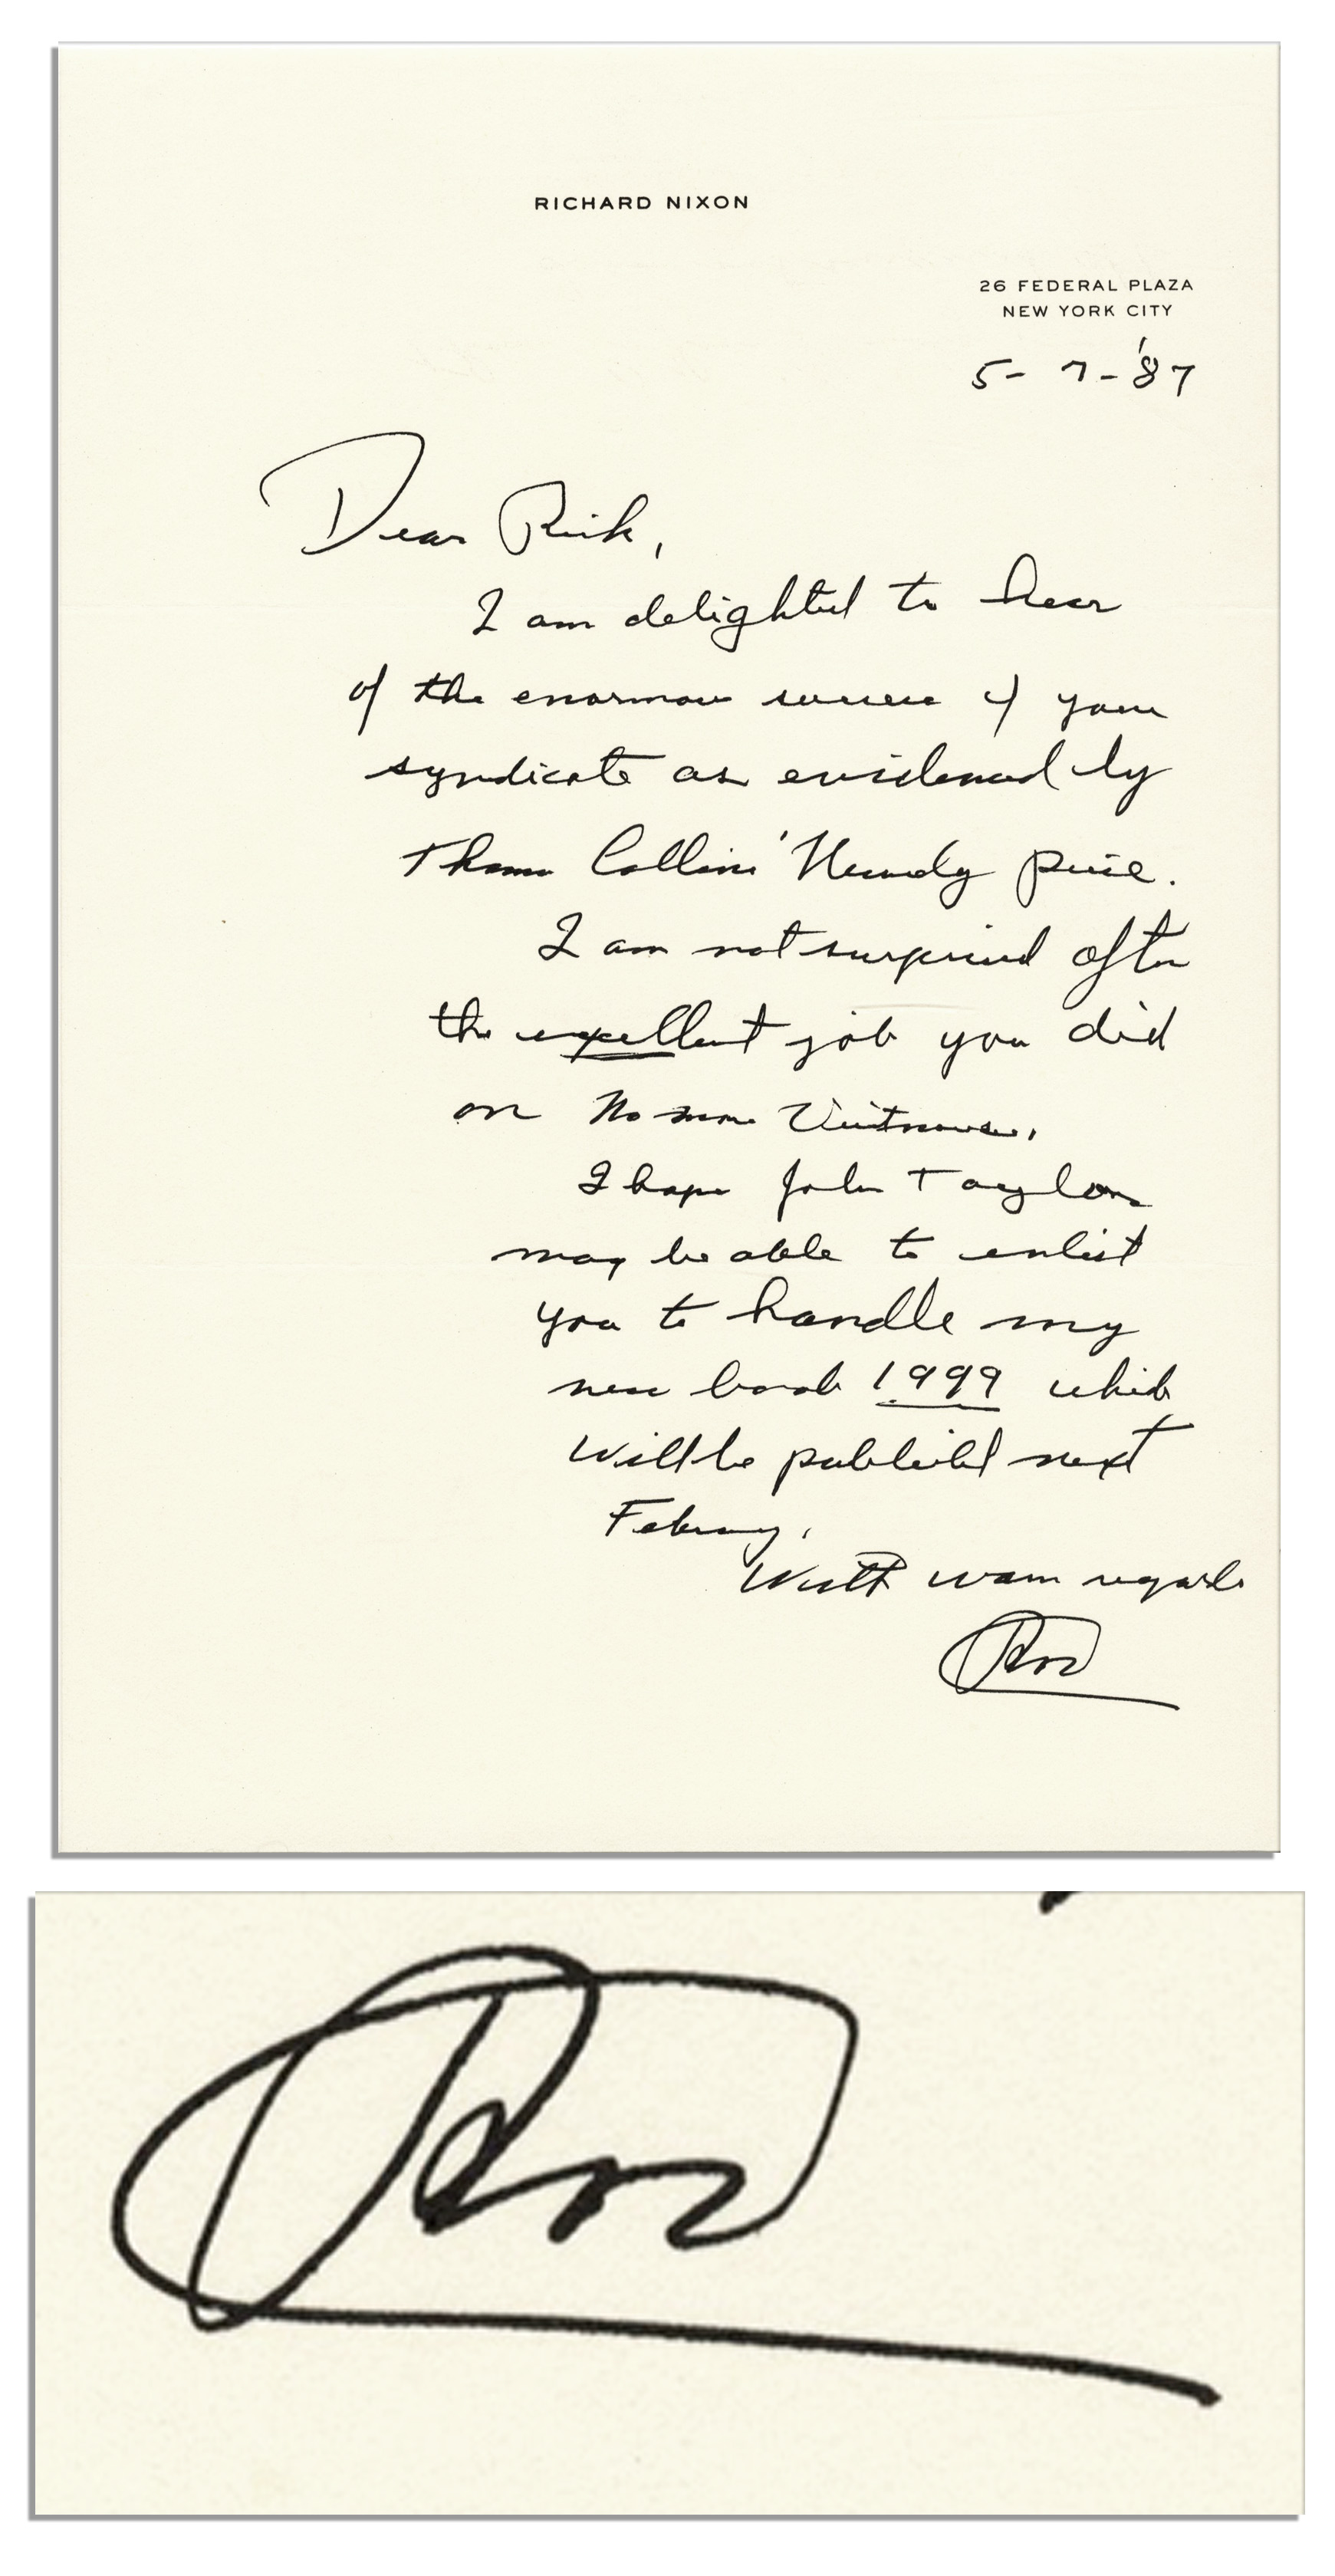 RICHARD NIXON
26 FEDERAL PLAZA
NEW YORK CITY
5-7-'87
Dear Rick,
I am delighted to hear
of the enormous success of your
syndicate as evidenced by
Thomas Collins' Newsday piece.
I am not surprised after
the excellent job you did
on No More Vietnams.
I hope John Taylor
may be able to enlist
you to handle my
new book 1999 which
will be published next
February.
With warm regards
RN